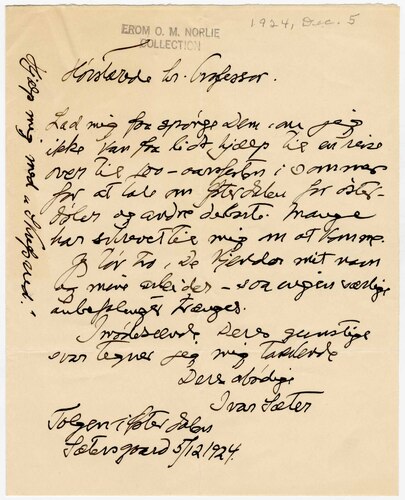 1924, Dec. 5
FROM O. M. NORLIE
COLLECTION
hr. Professor.
Lad mig faa spörge Dem, om jeg
ikke kan faa lidt hjælp til en reise
over til 100-aarsfesten i sommer
for at tale om Østerdalen for öster-
döler og andre debatt. Mange
har skrevet til mig om at komme.
Jeg tør tro, De kjender mit navn
og mine arbeider - saa ingen særlige
anbefalinger trænges.
Imødeseende Deres gunstige
svar tegner jeg mig takkende
Deres ærbödige
Ivar Sæter
Tolgen i Østerdalen
Sætersgaard 5/12 1924.
Hjælp mig med